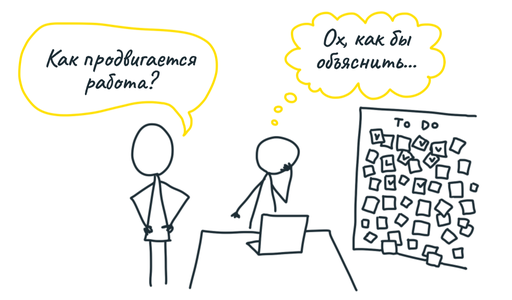 Как продвигается
работа?
Ох, как бы
объяснить...
TO DO